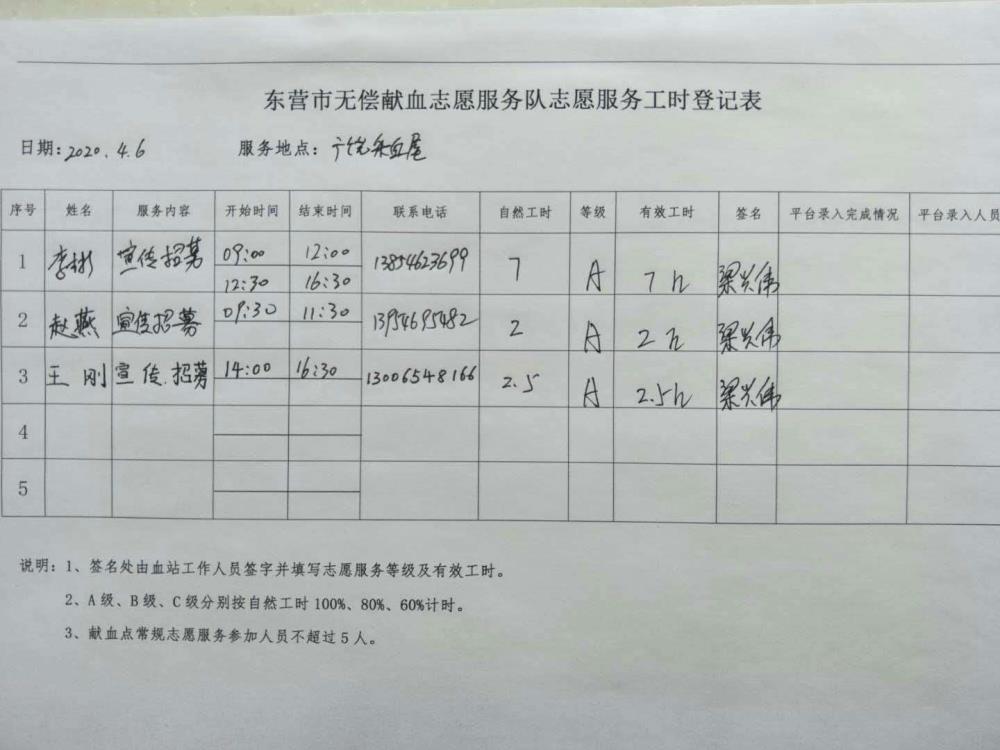 东营市无偿献血志愿服务队志愿服务工时登记表
日期:2020.4.6 服务地点:广饶采血屋
序号 姓名 服务内容 开始时间 结束时间 联系电话 自然工时 等级 有效工时 签名 平台录入完成情况 平台录入人员
1 李彬 宣传招募 09:00 12:00 13854623699 7 A 7h 梁兴伟
12:30 16:30
2 赵燕 宣传招募 09:30 11:30 13954695482 2 A 2h 梁兴伟
3 王刚 宣传.招募 14:00 16:30 13006548166 2.5 A 2.5h 梁兴伟
4
5
说明:1、签名处由血站工作人员签字并填写志愿服务等级及有效工时。
2、A级、B级、C级分别按自然工时100%、80%、60%计时。
3、献血点常规志愿服务参加人员不超过5人。